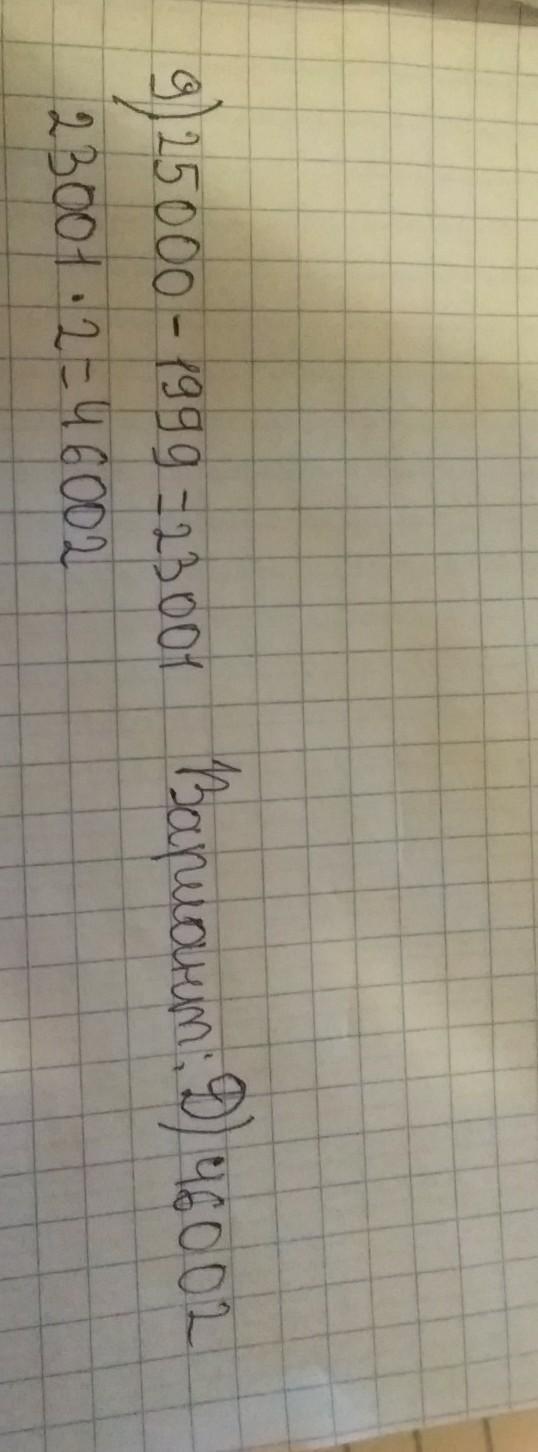 9) 25000 - 1999 = 23001 Вариант: Д) 46002
23001 · 2 = 46002